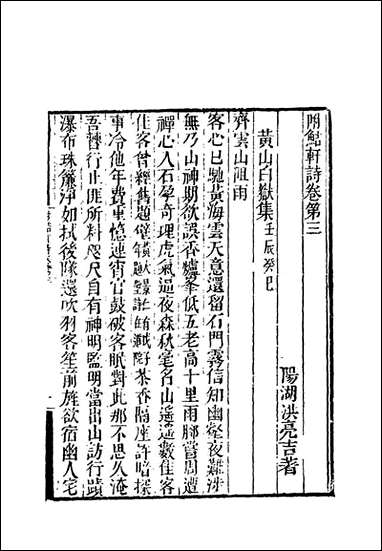 附鮚軒詩卷第三
陽湖洪亮吉著
黃山白嶽集壬辰癸巳
齊雲山阻雨
客心已馳黃海雲天意還留石門霧信知幽壑夜難涉
無乃山神期欲誤香爐峯低五老高十里雨腳嘗周遭
禪心入石孕奇理虎氣逼夜森秋毫名山遥遥數住客
住客曾經舊題 茶香隔座許暗探
事冷他年費重憶連宵官鼓破客眠對此那不思久淹
吾曹行止匪所料咫尺自有神明監明當出山訪行蹟
瀑布珠簾淨如拭後隊還吹羽客笙前旌欲宿幽人宅